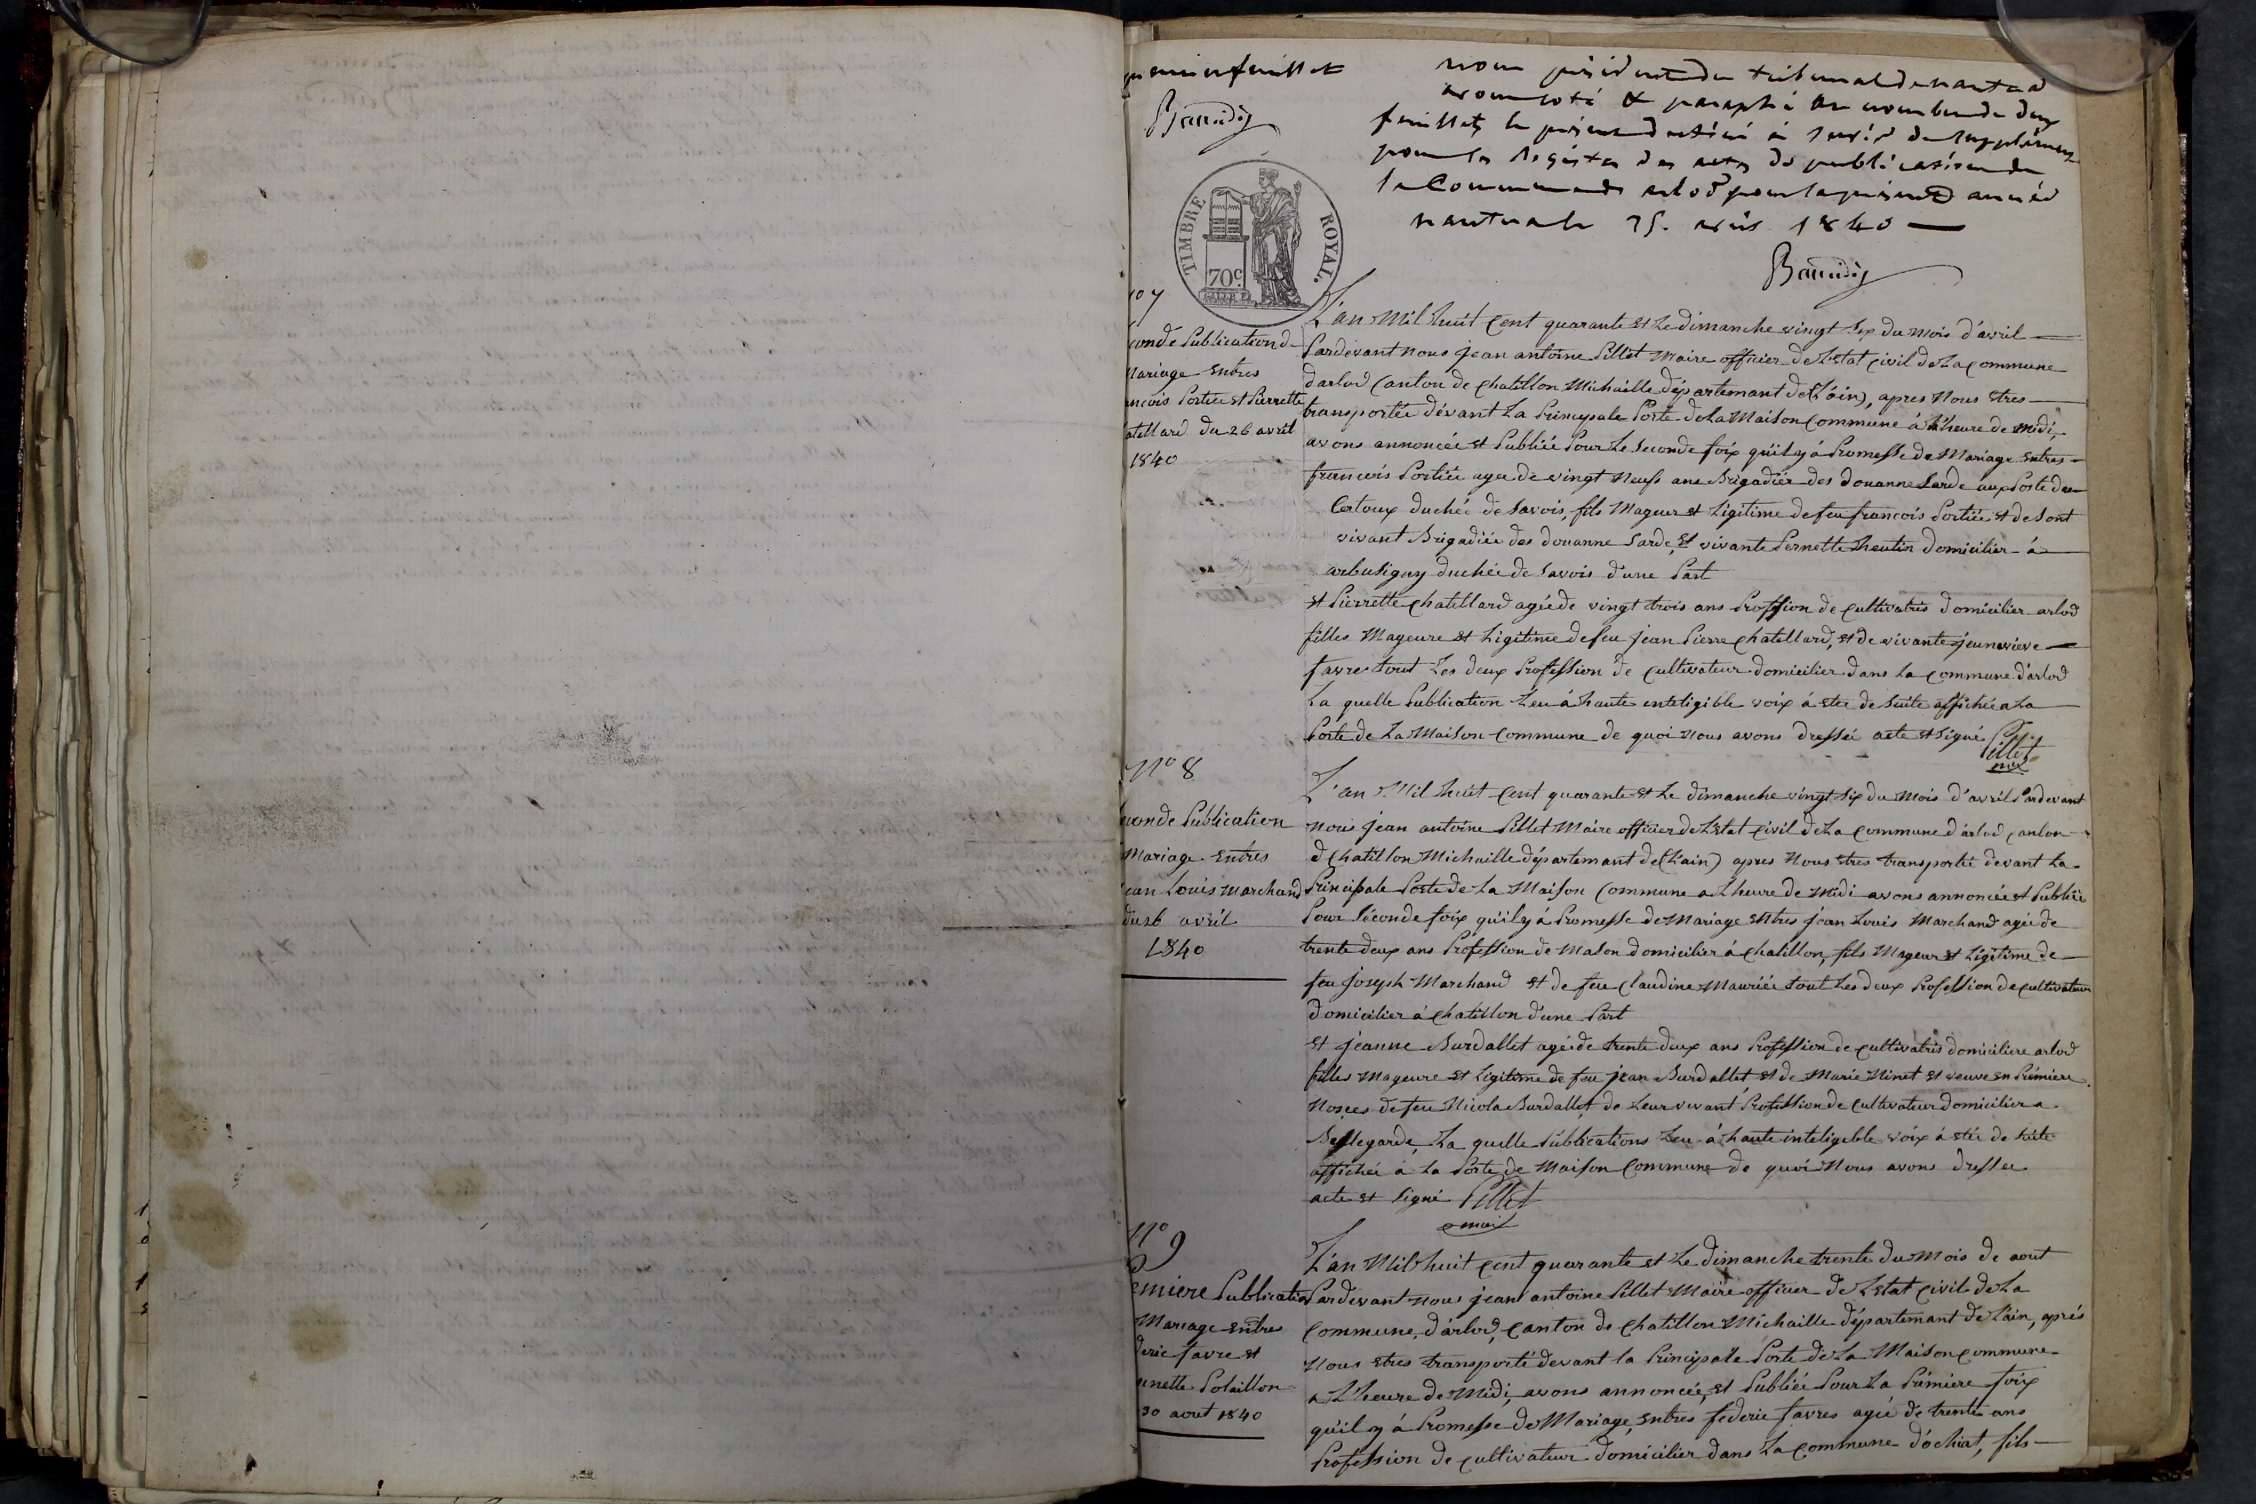 premier feuillet
nous président du tribunal de nantua
avons coté & paraphé au nombre de deux
feuillets le présent destiné à servir de supplément
pour les registres des actes de publications de
la Commune d'arlod pour la présente année
nantua le 25. avril 1840
TIMBRE ROYAL.
70c.
No 7
conde Publication d
Mariage Entres
ancois Portiée et Pierrette
atillard du 26 avril
1840
L'an Mil huit Cent quarante et Le dimanche vingt six du mois d'avril
Pardevant nous jean antoine Pillet Maire officier de L'Etat Civil de La Commune
darlod Canton de Chatillon Michaille département de (L'ain), apres Nous etres
transportée dévant La Principale Porte de La Maison Commune à L'heure de Midi,
avons annoncée et Publiée Pour Le Seconde foix qu'il y à Promesse de Mariage Entres
francois Portiée agée de vingt Neufs ans Brigadier des douanne Sarde aux Poste du
Certoux duchée de Savois, fils Mageur et Ligitime de feu francois Portiée et de Sont
vivant Brigadiée des douanne Sarde, et vivante Pernette heutin domicilier à
arbusigny duchée de Savois d'une Part
et Pierrette Chatillard agée de vingt trois ans Proffsion de Cultivatris domicilier arlod
filles Mageure et Ligitime de feu jean Pierre Chatillard, et de vivante jeunevieve
favre tout Les deux Profession de Cultivateur domicilier dans La Commune d'arlod
La quelle Publication Leu à haute inteligible voix à etée de Suite affichée a La
Porte de La Maison Commune de quoi Nous avons dressée acte et signé Pillet
No 8
conde Publication
Mariage Entres
ean Louis Marchand
du 26 avril
1840
L'an Mil huit Cent quarante et Le dimanche vingt six du Mois d'avril Pardevant
nous jean antoine Pillet Maire officier de L'Etat Civil de La Commune d'arlod Canton
d Chatillon Michaille département de (L'ain) apres Nous etres transportée devant La
Principale Porte de La Maison Commune a L'heure de Midi avons annoncée et Publiée
Pour Séconde foix qu'il y à Promesse de Mariage Entres jean Louis Marchand agée de
trente deux ans Profession de Mason domicilier à Chatillon, fils Mageur et Ligitime de
feu joseph Marchand et de feue Claudine Mauriée tout Les deux Profession de Cultivateur
domicilier à Chatillon d'une Part
et jeanne Burdallet agée de trente deux ans Profession de Cultivatris domiciliere arlod
filles Mageure et Ligitime de feu jean Burdallet et de Marie Ninet et veuve en Prémiere
Nosces de feu Nicola Burdallet de Leur vivant Profession de Cultivateur domicilier a
Bellegarde, La quelle Publications Leu à haute inteligible voix à etée de Suite
affichée à La Porte de Maison Commune de quoi Nous avons dressée
acte et signé Pillet
maire
No 9
emiere Publication
Mariage Entres
deric favre et
anette Poláillon
30 aout 1840
L'an Mil huit Cent quarante et Le dimanche trente du Mois de aout
Pardevant nous jean antoine Pillet Maire officier de L'Etat Civil de La
Commune, d'arlod, Canton de Chatillon Michaille département de L'ain, aprés
Nous etres transporté devant la Principale Porte de La Maison Commune
a L'heure de Midi, avons annoncée, et Publiée Pour La Prémiere foix
qu'il y à Promesse de Mariage, Entres federic favres agée de trente ans
Profession de Cultivateur domicilier dans La Commune d'ochiat, fils